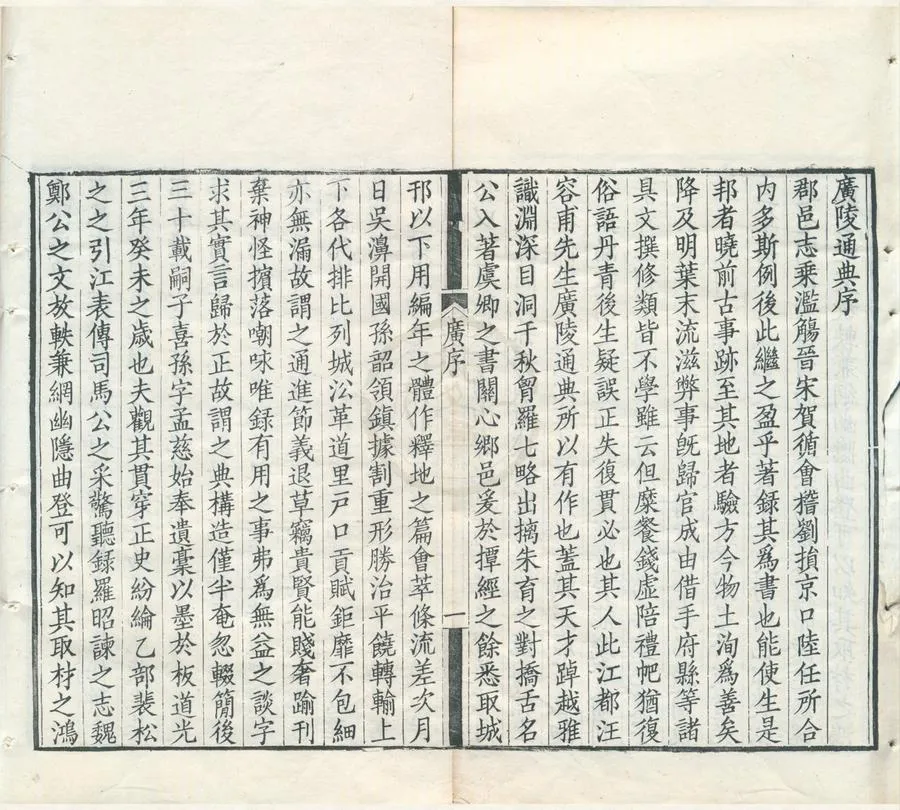 廣陵通典序
郡邑志乘濫觴晉宋賀循會稽劉損京口陸任所合
內多斯例後此繼之盈乎著録其爲書也能使生是
邦者曉前古事跡至其地者驗方今物土洵爲善矣
降及明葉末流滋弊事旣歸官成由借手府縣等諸
具文撰修類皆不學雖云但糜餐錢虛陪禮帊猶復
俗語丹青後生疑誤正失復貫必也其人此江都汪
容甫先生廣陵通典所以有作也蓋其天才踔越雅
識淵深目洞千秋胷羅七略出摛朱育之對撟舌名
公入著虞卿之書關心鄉邑爰於撢經之餘悉取城
廣序
一
邗以下用編年之體作釋地之篇會萃條流差次月
日吳濞開國孫韶領鎭據割重形勝治平饒轉輸上
下各代排比列城㳂革道里戸口貢賦鉅靡不包細
亦無漏故謂之通進節義退草竊貴賢能賤奢踰刊
棄神怪擯落嘲咏唯録有用之事弗爲無益之談字
求其實言歸於正故謂之典構造僅半奄忽輟簡後
三十載嗣子喜孫字孟慈始奉遺稾以墨於板道光
三年癸未之歲也夫觀其貫穿正史紛綸乙部裴松
之之引江表傳司馬公之采驚聽録羅昭諫之志魏
鄭公之文放軼兼網幽隱曲登可以知其取材之鴻